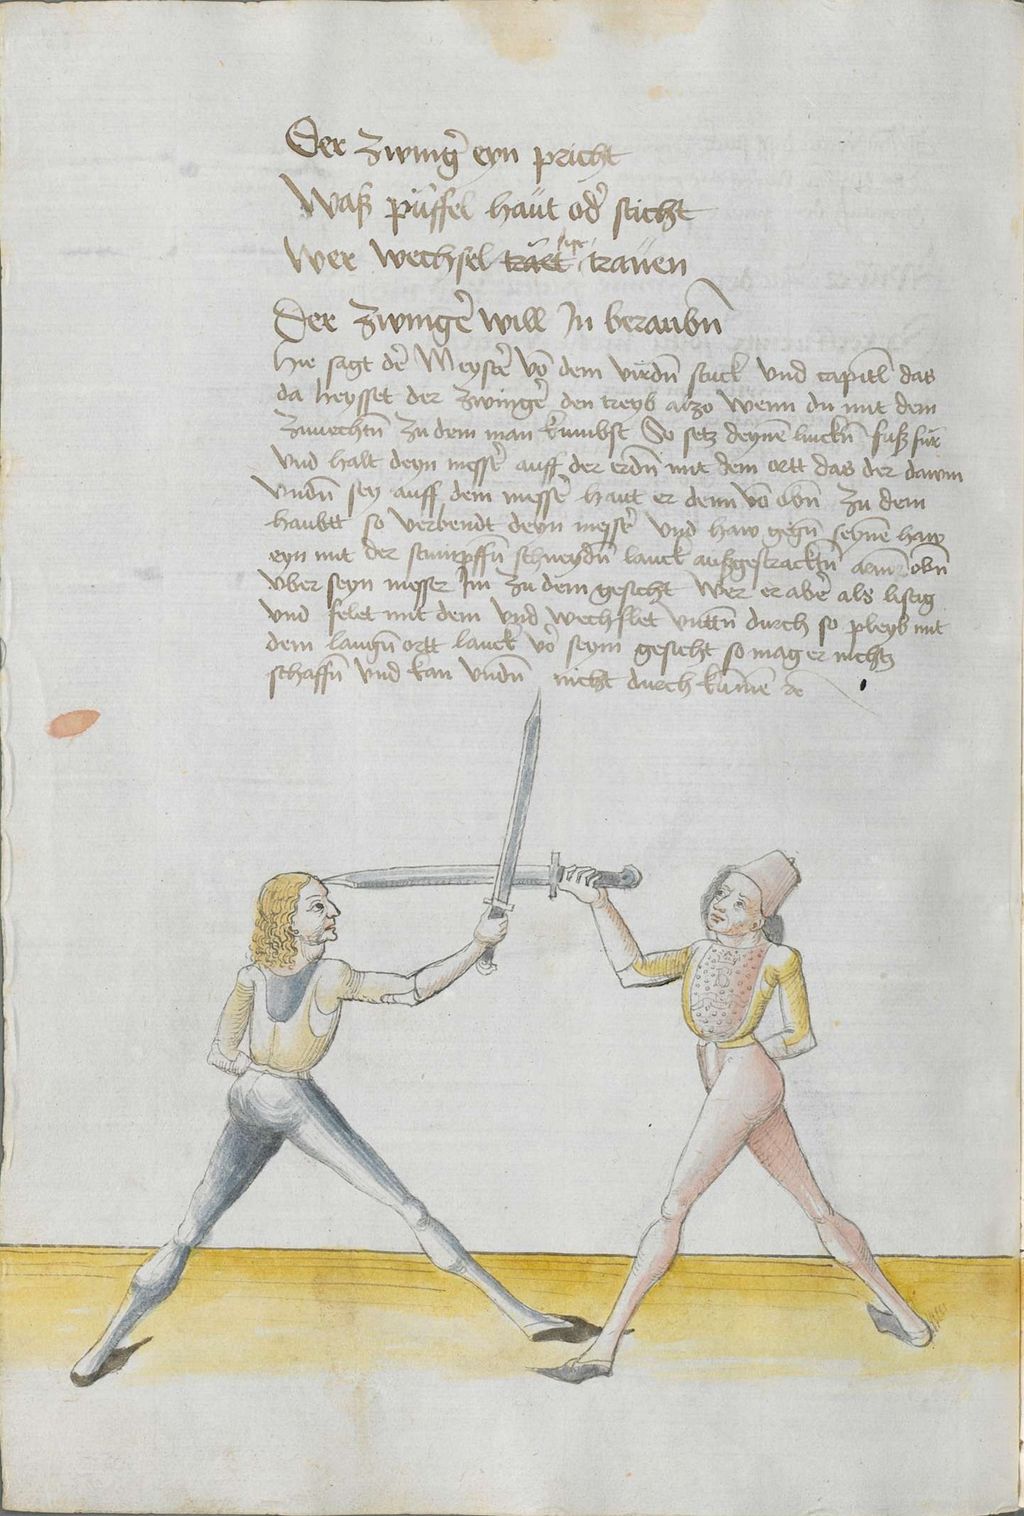 Der Zwinger̄ eyn pricht
Waß püffel haüt oder̄ sticht
Wer wechsel traüen
Der Zwinger̄ will In beraubn̄
Hie sagt der̄ Meyster̄ vō dem virdn̄ stuck vnd capitl das
da heysset der Zwinger̄ den treyb alzo wenn du mit dem
Zuuechtn̄ Zu dem man kumbst So setz deynē linckn̄ fuß für
vnd halt deyn messer̄ auff der erdn̄ mit dem ortt das der dawm
vndn̄ sey auff dem messer̄ haut er denn vō obn̄ Zu dem
haubtt so verbendt deyn messer̄ vnd haw gegn̄ seynē haw
eyn mit der stumpffn̄ schneydn̄ lanck außgestracktn̄ obn̄
vber seyn messer Im Zu dem gesicht Wer er aber̄ als listig
vnd felet mit dem vnd wechslet vnttn̄ durch so pleyb mit
dem langn̄ ortt lanck vor̄ seym gesicht so mag er nichtz
schaffn̄ vnd kan vndn̄ nicht durch kumē